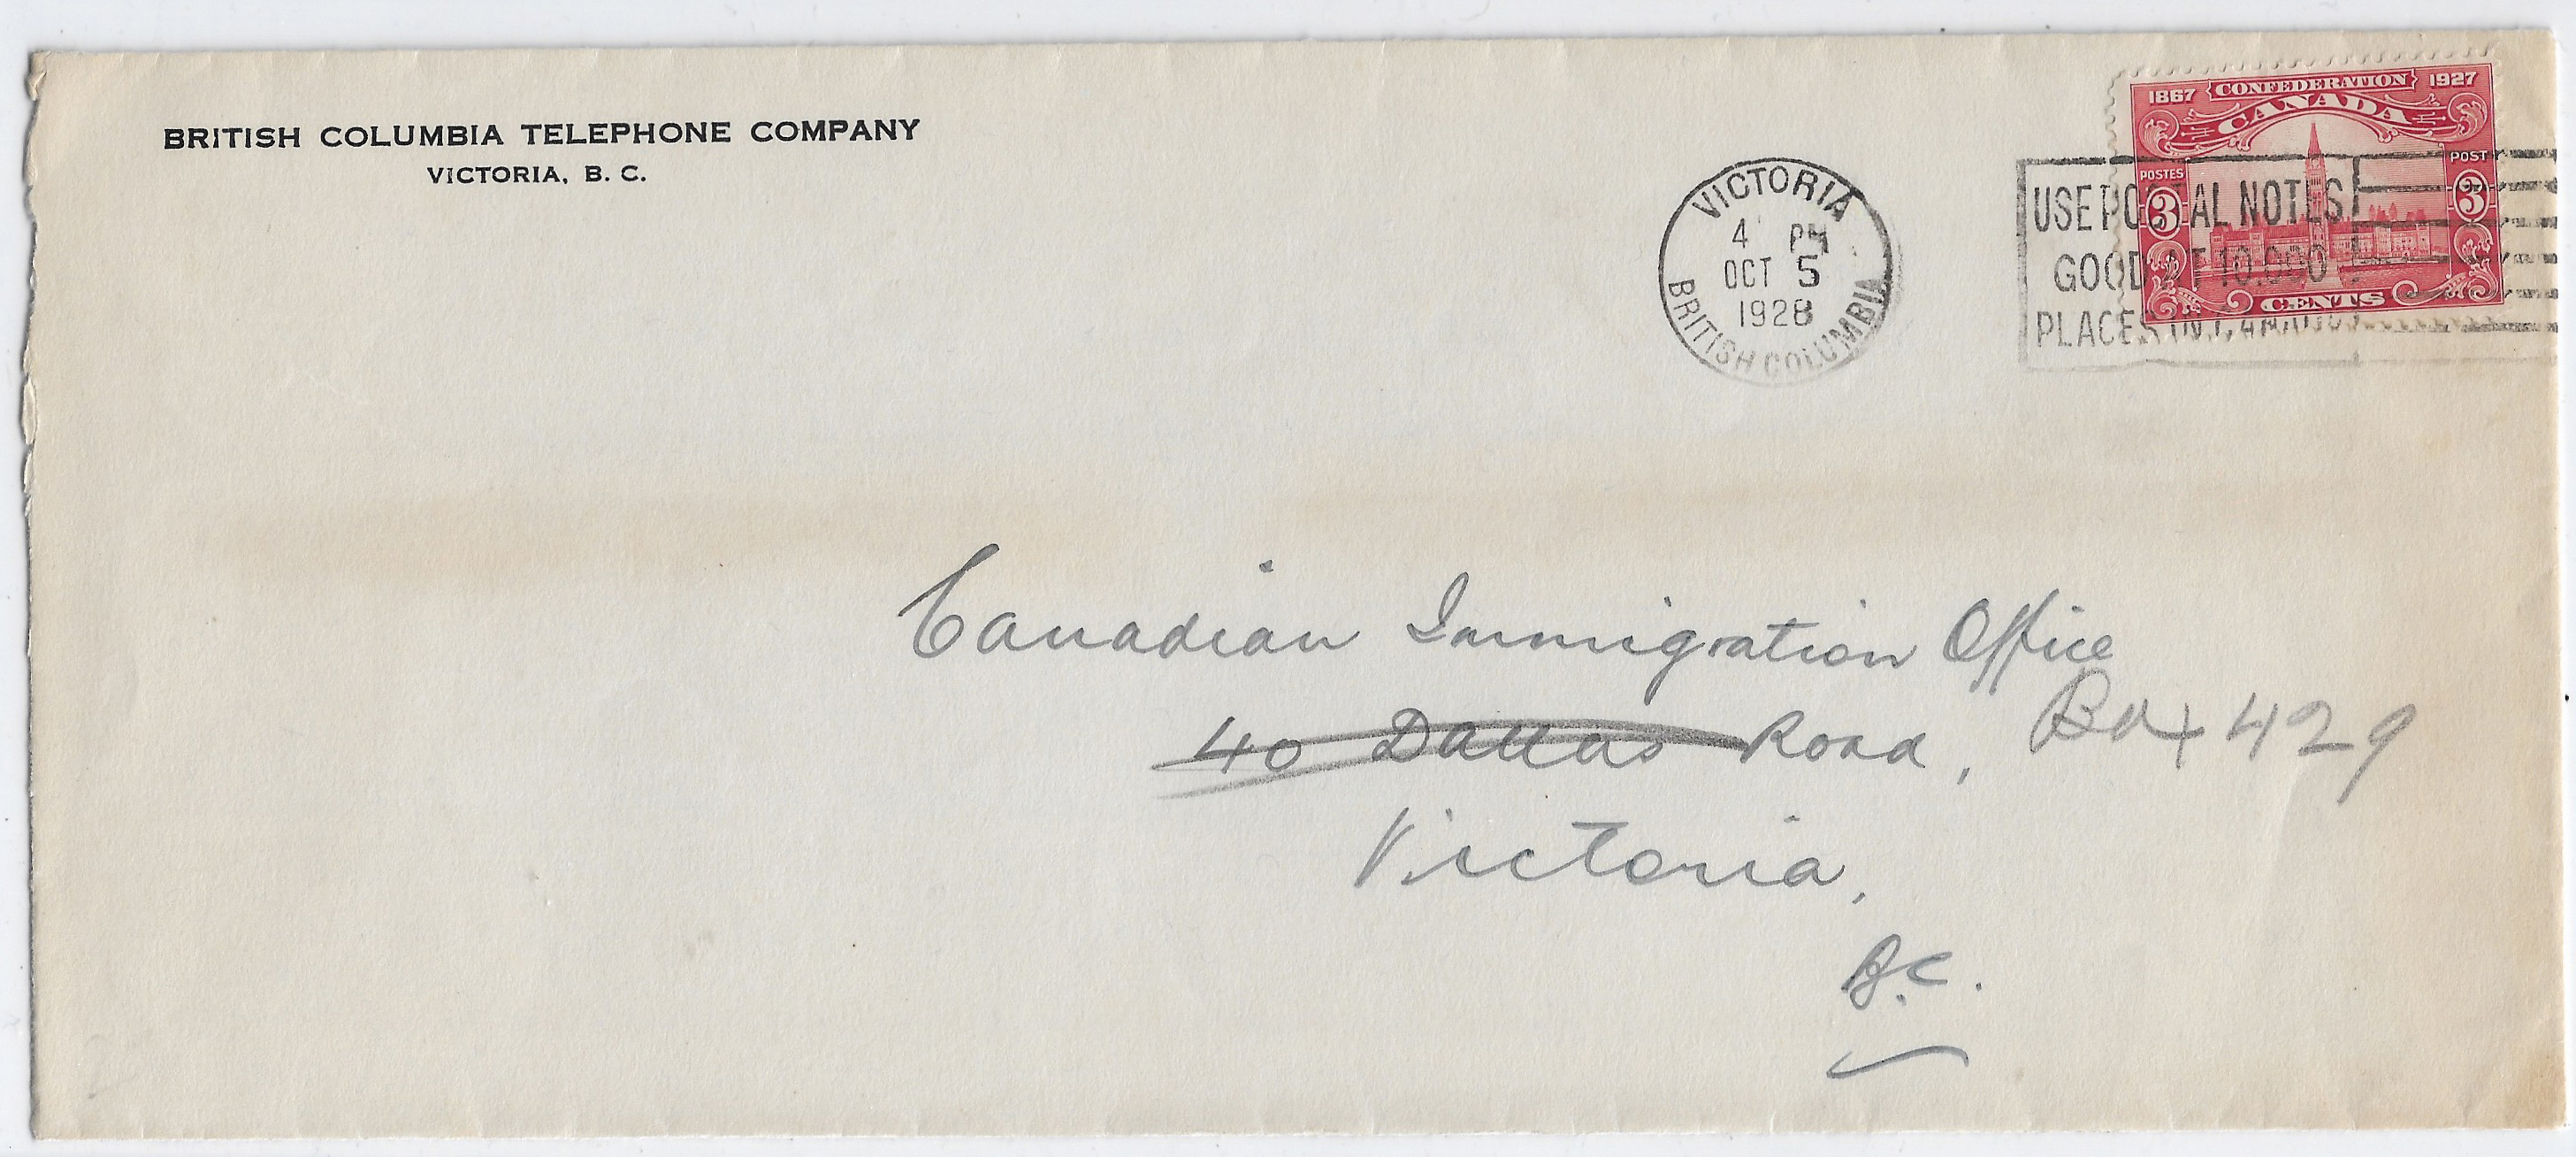 BRITISH COLUMBIA TELEPHONE COMPANY
VICTORIA, B. C.
VICTORIA
4 PM
OCT 5
1928
BRITISH COLUMBIA
USE POSTAL NOTES
GOOD AT 10.000
PLACES IN CANADA
1867 CONFEDERATION 1927
CANADA
POSTES POST
3 3
CENTS
Canadian Immigration Office
40 Dallas Road, Box 429
Victoria,
B.C.